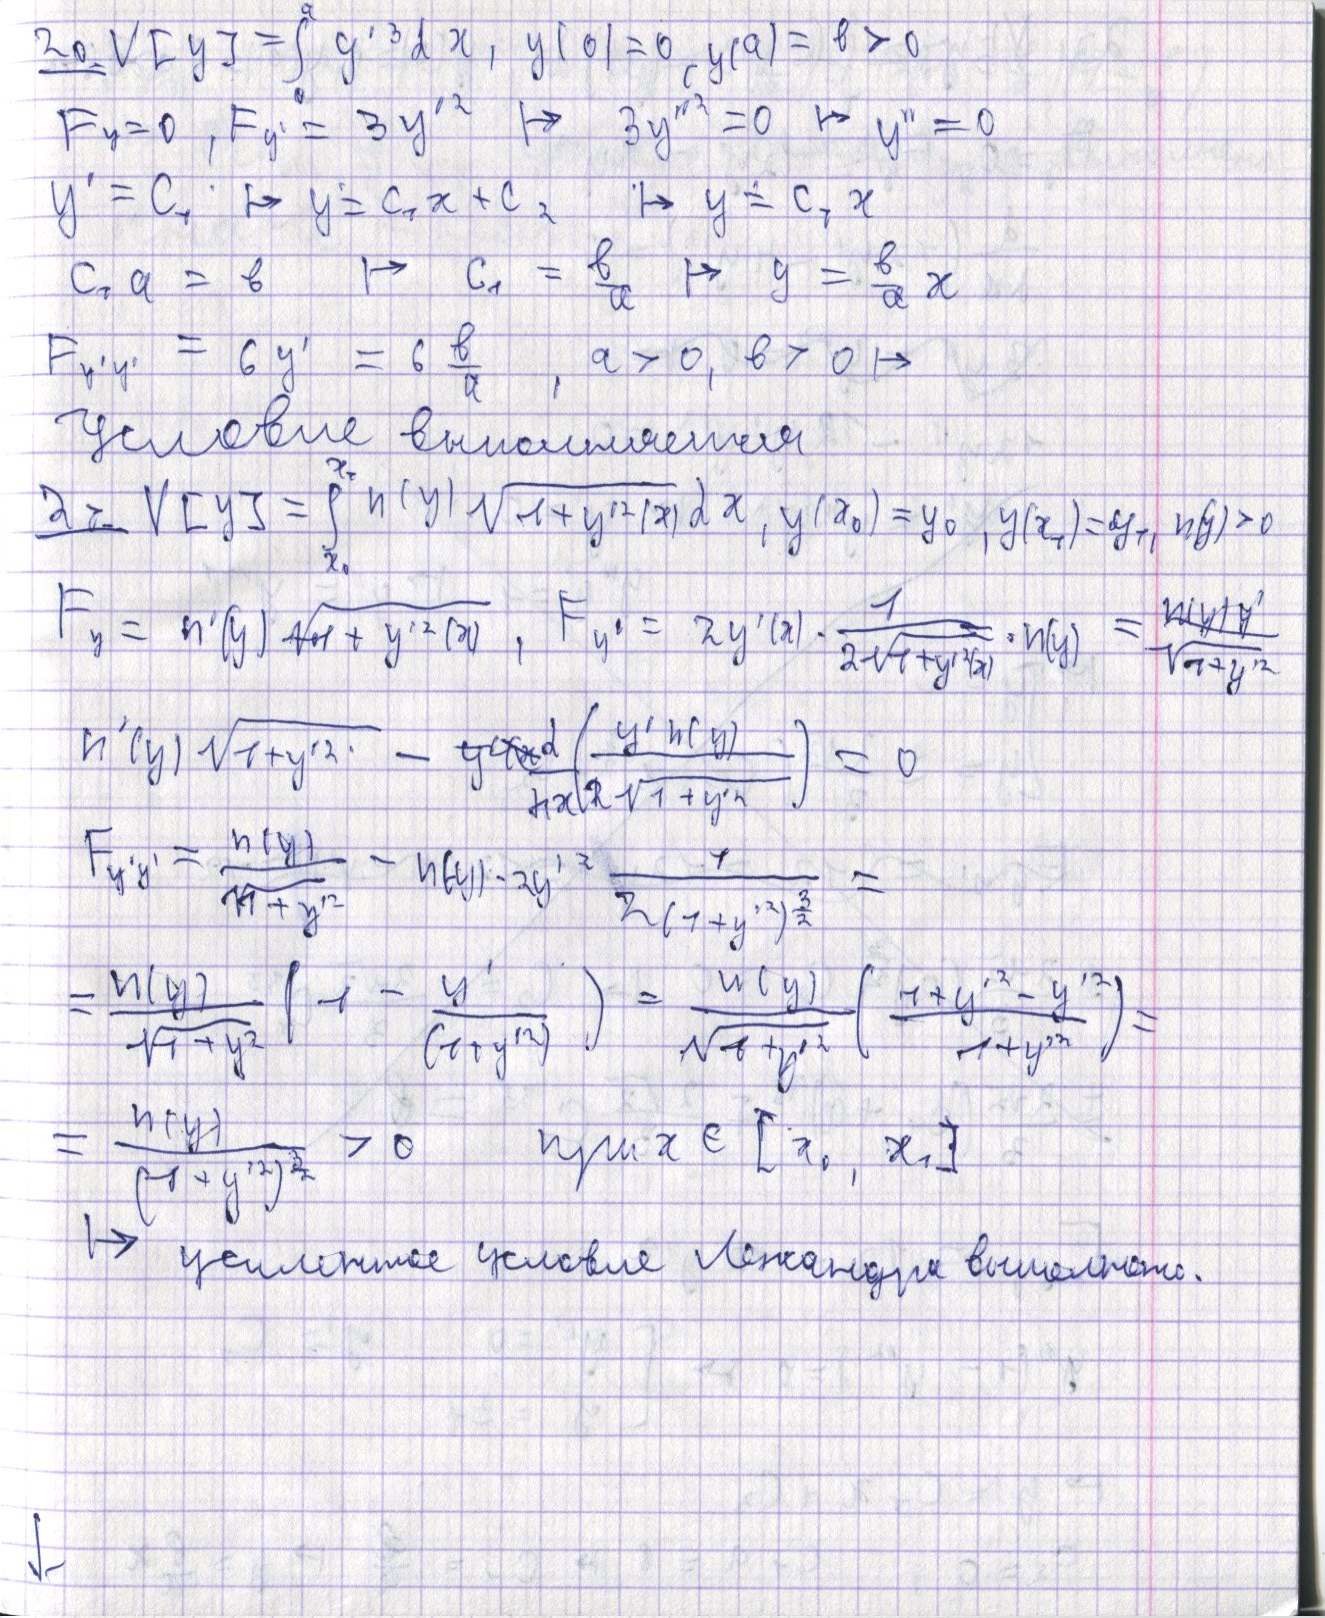 20. V[y] = ∫₀ᵃ y'³dx, y(0)=0, y(a)=в>0
F_y=0, F_y' = 3y'² ↦ 3y''²=0 ↦ y''=0
y' = C₁ ↦ y=C₁x+C₂ ↦ y=C₁x
C₁a = в ↦ C₁ = в/a ↦ y = в/a x
F_y'y' = 6y' = 6 в/a, a>0, в>0 ↦
Условие выполняется
21. V[y] = ∫_{x₀}^{x₁} n(y)√(1+y'²(x)) dx, y(x₀)=y₀, y(x₁)=y₁, n(y)>0
F_y = n'(y)√(1+y'²(x)), F_y' = 2y'(x)·1/(2√(1+y'²(x)))·n(y) = n(y)y'/√(1+y'²)
n'(y)√(1+y'²) - d/dx(y'n(y)/√(1+y'²)) = 0
F_y'y' = n(y)/√(1+y'²) - n(y)·2y'² 1/(2(1+y'²)^(3/2)) =
= n(y)/√(1+y²) (1 - y'/(1+y'²)) = n(y)/√(1+y'²) ((1+y'²-y'²)/(1+y'²)) =
= n(y)/(1+y'²)^(3/2) > 0 при x∈[x₀, x₁]
↦ усиленное условие Лежандра выполнено.